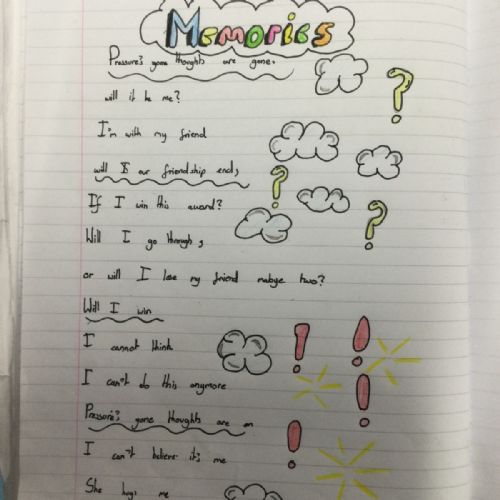 Memories
Pressure's gone thoughts are gone.
will it be me?
I'm with my friend
will is our friendship end,
If I win this award?
Will I go through,
or will I lose my friend mabye two?
Will I win
I cannot think
I can't do this anymore
Pressure's gone thoughts are on
I can't believe it's me
She hugs me